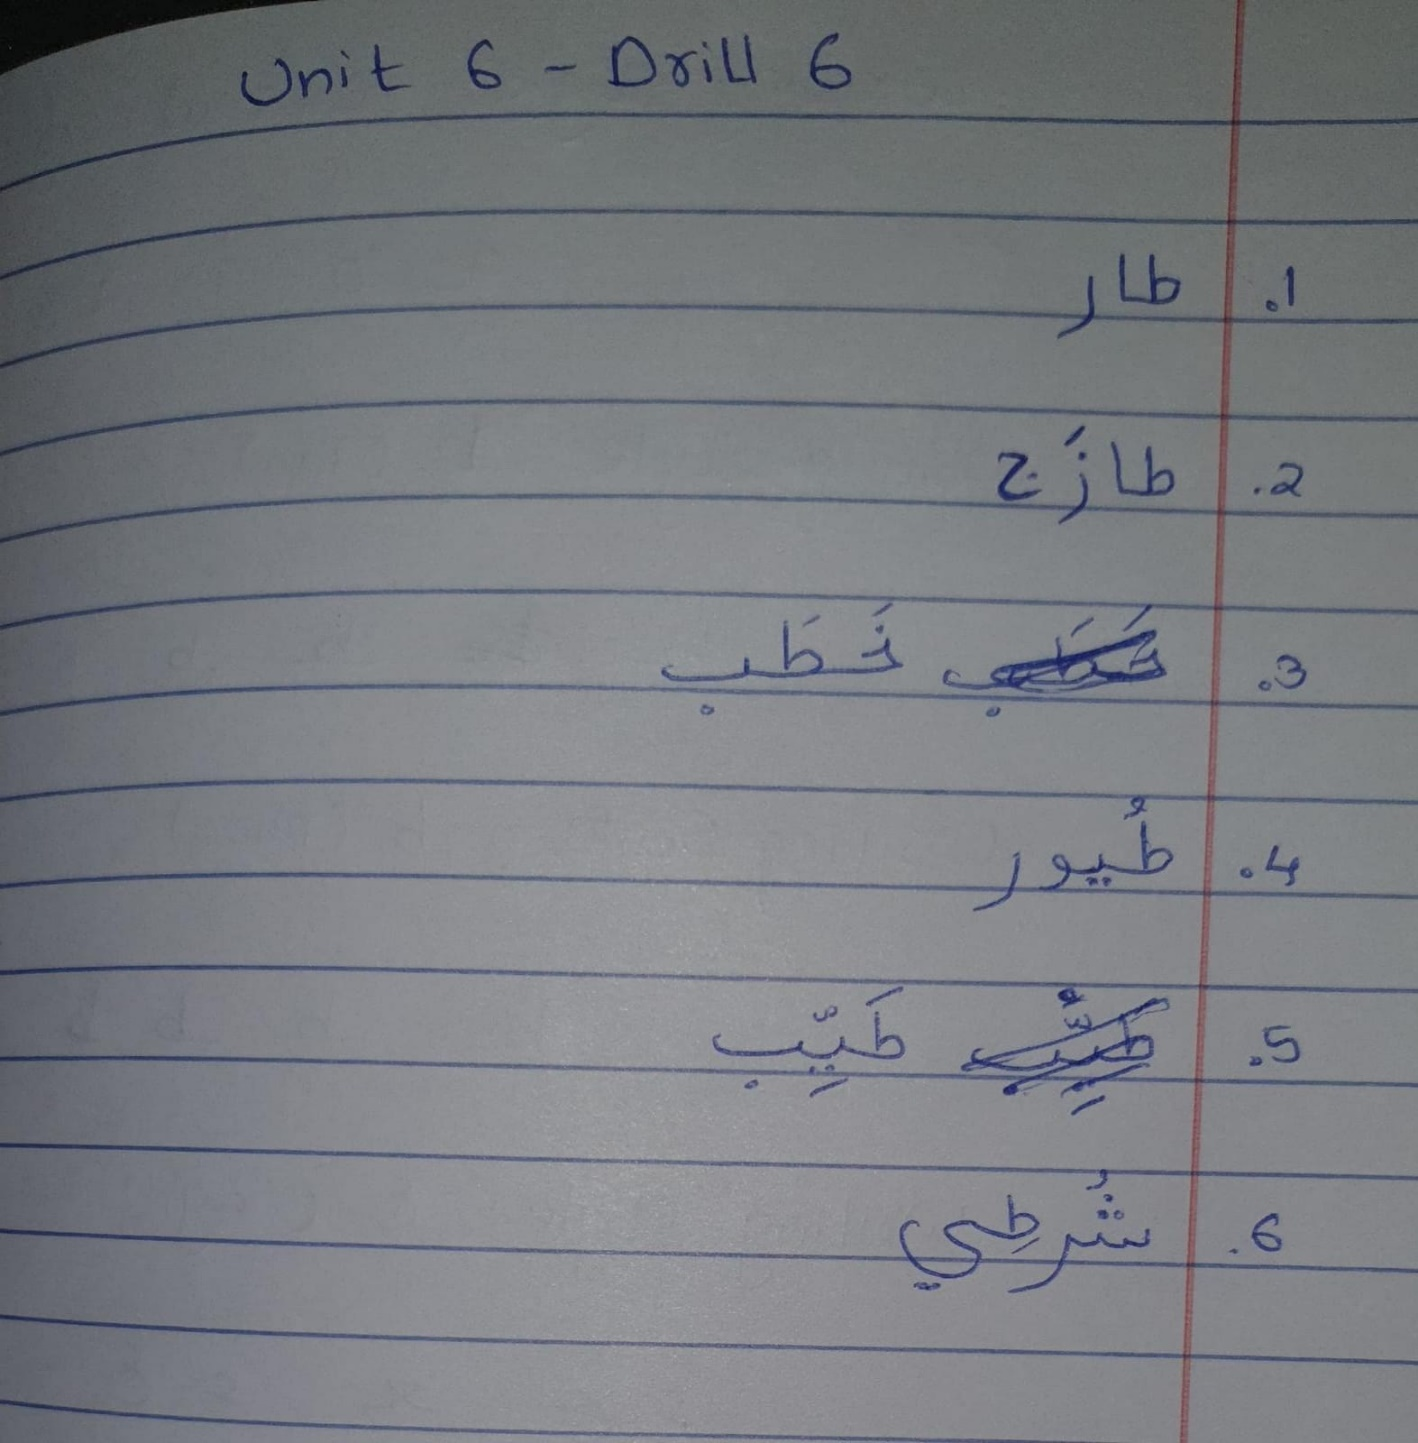 Unit 6 - Drill 6
1. طار
2. طازَج
3. خَطَب
4. طُيور
5. طَيِّب
6. شُرطِي